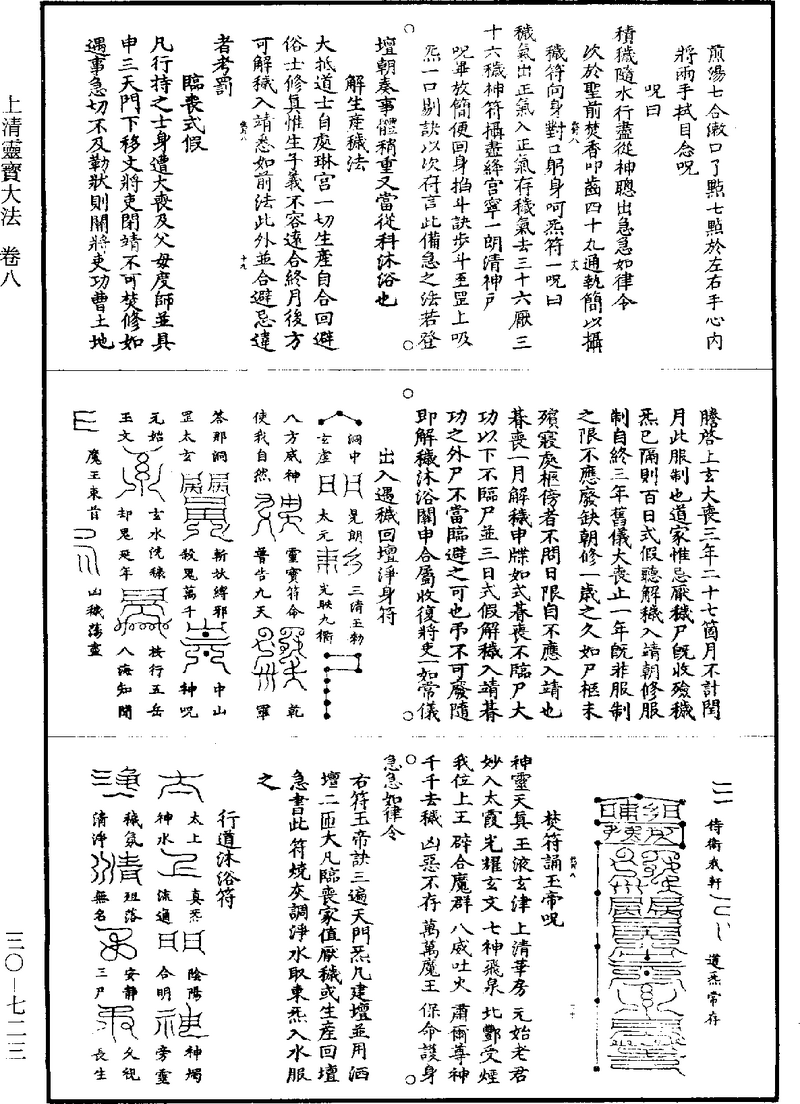 上清靈寶大法 卷八
三〇-七二三
煎湯七合漱口了點七點於左右手心内
將兩手拭目念呪
呪曰
積穢隨水行盡從神聰出急急如律令
次於聖前焚香叩齒四十九通執簡以攝
穢符向身對口躬身呵炁符一呪曰
穢氣出正氣入正氣存穢氣去三十六厭三
十六穢神符攝盡絳宫寧一朗清神戶
呪畢放簡便回身掐斗訣步斗至罡上吸
炁一口剔訣以次存言此備急之法若登
壇朝奏事體稍重又當從科沐浴也
解生產穢法
大抵道士自處琳宫一切生產自合回避
俗士修真惟生子義不容遠合終月後方
可解穢入靖悉如前法此外並合避忌違
者考罰
臨喪式假
凡行持之士身遭大喪及父母度師並具
申三天門下移文將吏閉靖不可焚修如
遇事急切不及勒狀則關將吏功曹土地
騰啓上玄大喪三年二十七箇月不計閏
月此服制也道家惟忌厭穢尸既收殮穢
炁已隔則百日式假聽解穢入靖朝修服
制自終三年舊儀大喪止一年既非服制
之限不應廢缺朝修一歲之久如尸柩未
殯寢處柩傍者不問日限自不應入靖也
朞喪一月解穢申牒如式朞喪不臨尸大
功以下不臨尸並三日式假解穢入靖朞
功之外尸不當臨避之可也弔不可廢隨
即解穢沐浴關申合屬收復將吏一如常儀
出入遇穢回壇淨身符
洞中 晃朗 三清玉勑
玄虚 太元 光映九衢
八方威神 靈寶符命 乾
使我自然 普告九天 羅
荅那洞 斬妖縛邪 中山
罡太玄 殺鬼萬千 神呪
元始 玄水洗穢 按行五岳
玉文 却鬼延年 八海知聞
魔王束首 凶穢蕩盡
侍衛我軒 道炁常存
焚符誦玉帝呪
神靈天真 玉液玄津 上清華房 元始老君
妙入太霞 光耀玄文 七神飛泉 北酆受煙
我位上王 辟合魔群 八威吐火 肅爾尊神
千千去穢 凶惡不存 萬萬魔王 保命護身
急急如律令
右符玉帝訣三遍天門炁凡建壇並用洒
壇二匝大凡臨喪家值厭穢或生產回壇
急書此符燒灰調淨水取東炁入水服
之
行道沐浴符
太上 真炁 陰陽 神燭
神水 流通 合明 旁靈
穢氛 安靜 久視
清淨 無名 三尸 長生